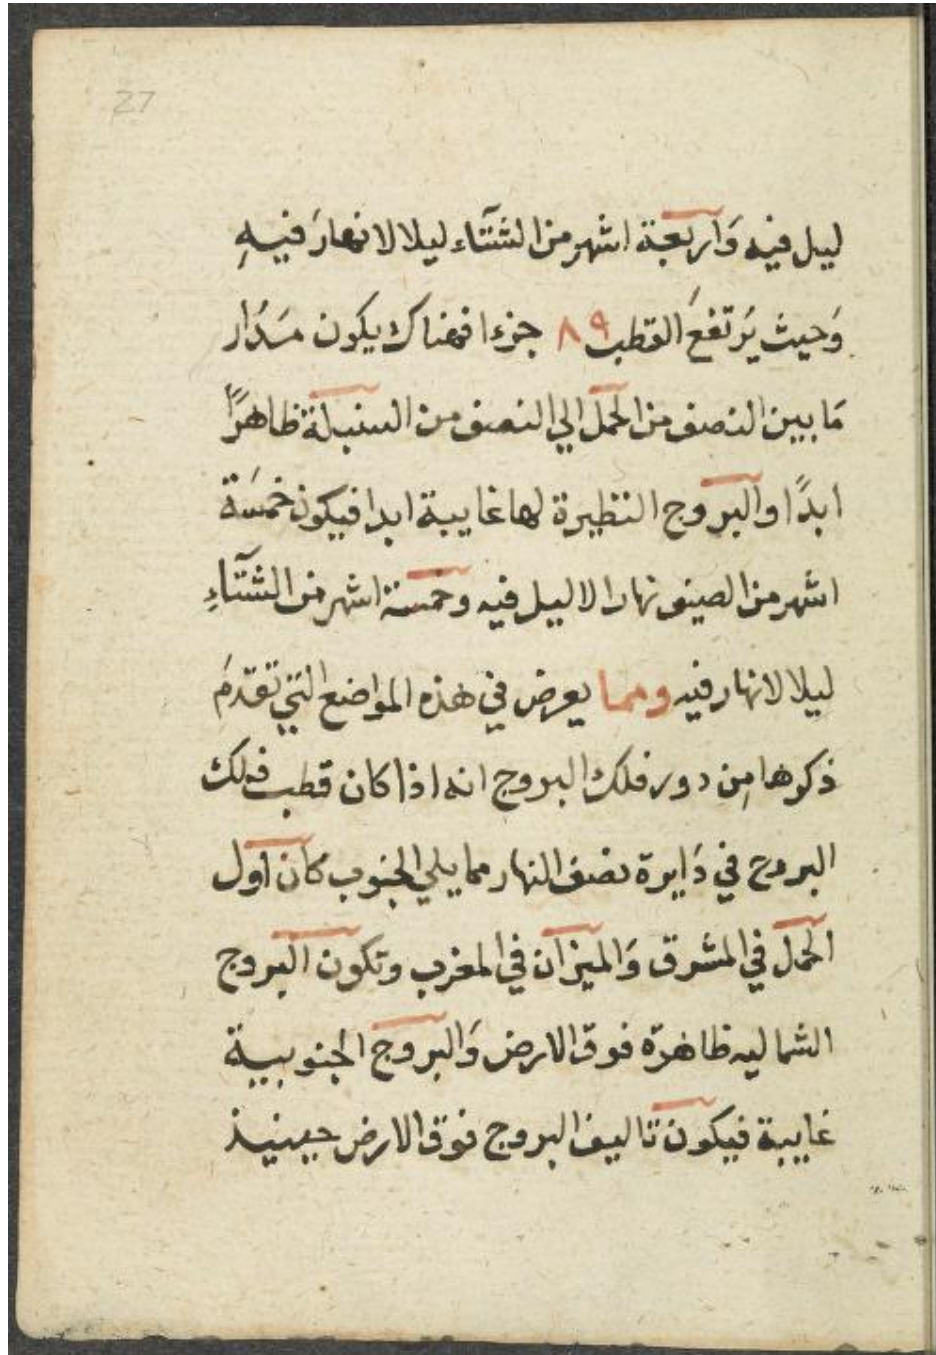 27
ليل فيه وَاربعة اشهر من الشتآء ليلا لا نهارَ فيهِ
وَحيث يَرتفعَ القطب ٨٩ جزءا فهناك يكون مَدَار
مَا بين النصف من الحمل الي النصف من السنبلة ظاهرًا
ابدًا والبروج النظيرة لها غايبة ابدا فيكون خمسَة
اشهر من الصيف نهارا لا ليل فيه وخمسة اشهر من الشتآءِ
ليلا لا نهار فيه ومما يعرض في هذه المواضع التي تقدمَ
ذكرها مِن دور فلك البروج انه اذا كان قطب فلك
البروج في دَايرة نصف النهار مما يلي الجنوب كان اول
الحمل في المشرق وَالميزان في المغرب وتكون البروج
الشماليه ظاهرة فوق الارض وَالبروج الجنوبية
غايبة فيكون تاليف البروج فوق الارض حينيذ